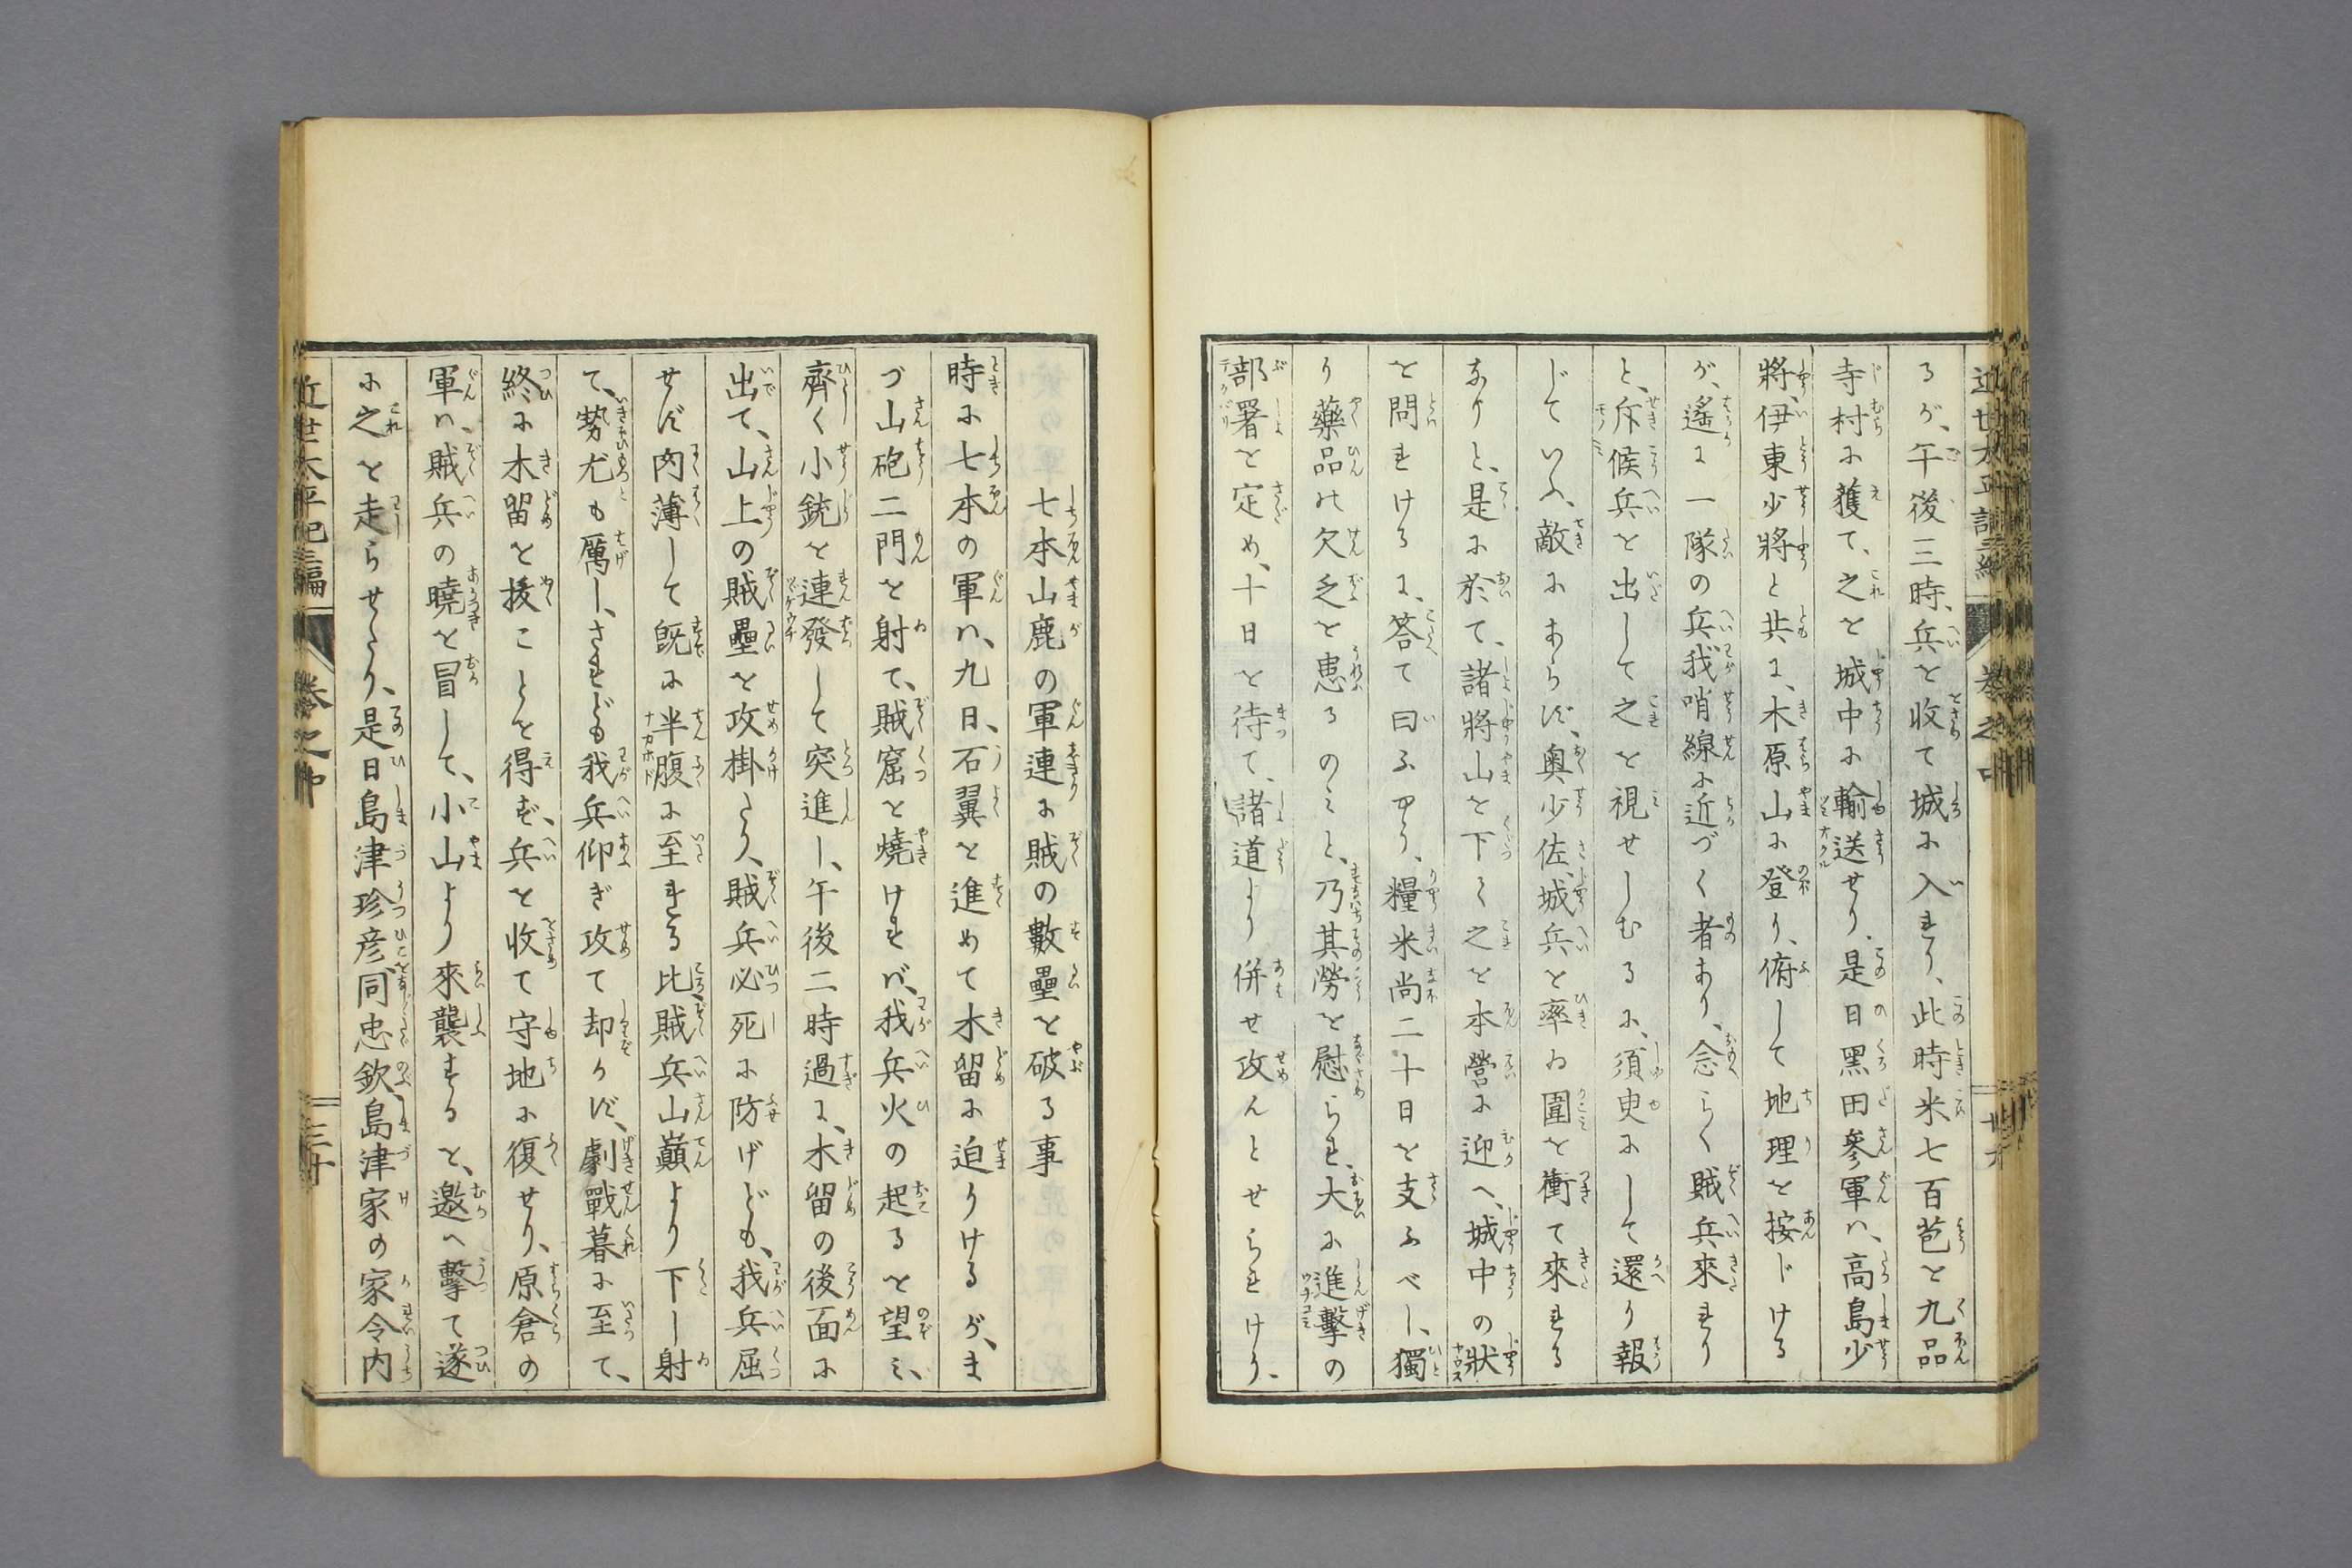 るが、午後三時、兵を收て城に入れり、此時米七百苞と九品
寺村に獲て、之を城中に輸送せり、是日黑田參軍ハ、高島少
將、伊東少將と共に、木原山に登り、俯して地理を按じける
が、遙に一隊の兵我哨線に近づく者あり、念らく賊兵來れり
と、斥候兵を出して之を視せしむるに、須臾にして還り報
じていふ、敵にあらず、奧少佐、城兵を率ゐ圍を衝て來れる
なりと、是に於て、諸將山を下く之を本營に迎へ、城中の狀
を問れけるに、答て曰ふやう、糧米尚二十日を支ふべし、獨
り藥品の欠乏を患るのミと、乃其勞を慰られ、大に進擊の
部署を定め、十日を待て、諸道より併せ攻んとせられけり、
七本山鹿の軍連に賊の數壘を破る事
時に七本の軍ハ、九日、右翼を進めて木留に迫りけるが、ま
づ山砲二門を射て、賊窟を燒けれバ、我兵火の起るを望ミ、
齊く小銃を連發して突進し、午後二時過に、木留の後面に
出て、山上の賊壘を攻掛たり、賊兵必死に防げども、我兵屈
せず肉薄して既に半腹に至れる比、賊兵山巔より下し射
て、勢尤も厲し、されども我兵仰ぎ攻て却かず、劇戰暮に至て、
終に木留を拔ことを得ず、兵を收て守地に復せり、原倉の
軍ハ、賊兵の曉を冒して、小山より來襲すると、邀へ擊て遂
に之を走らせたり、是日島津珍彦同忠欽島津家の家令内
近世太平記三編 卷之中 三十